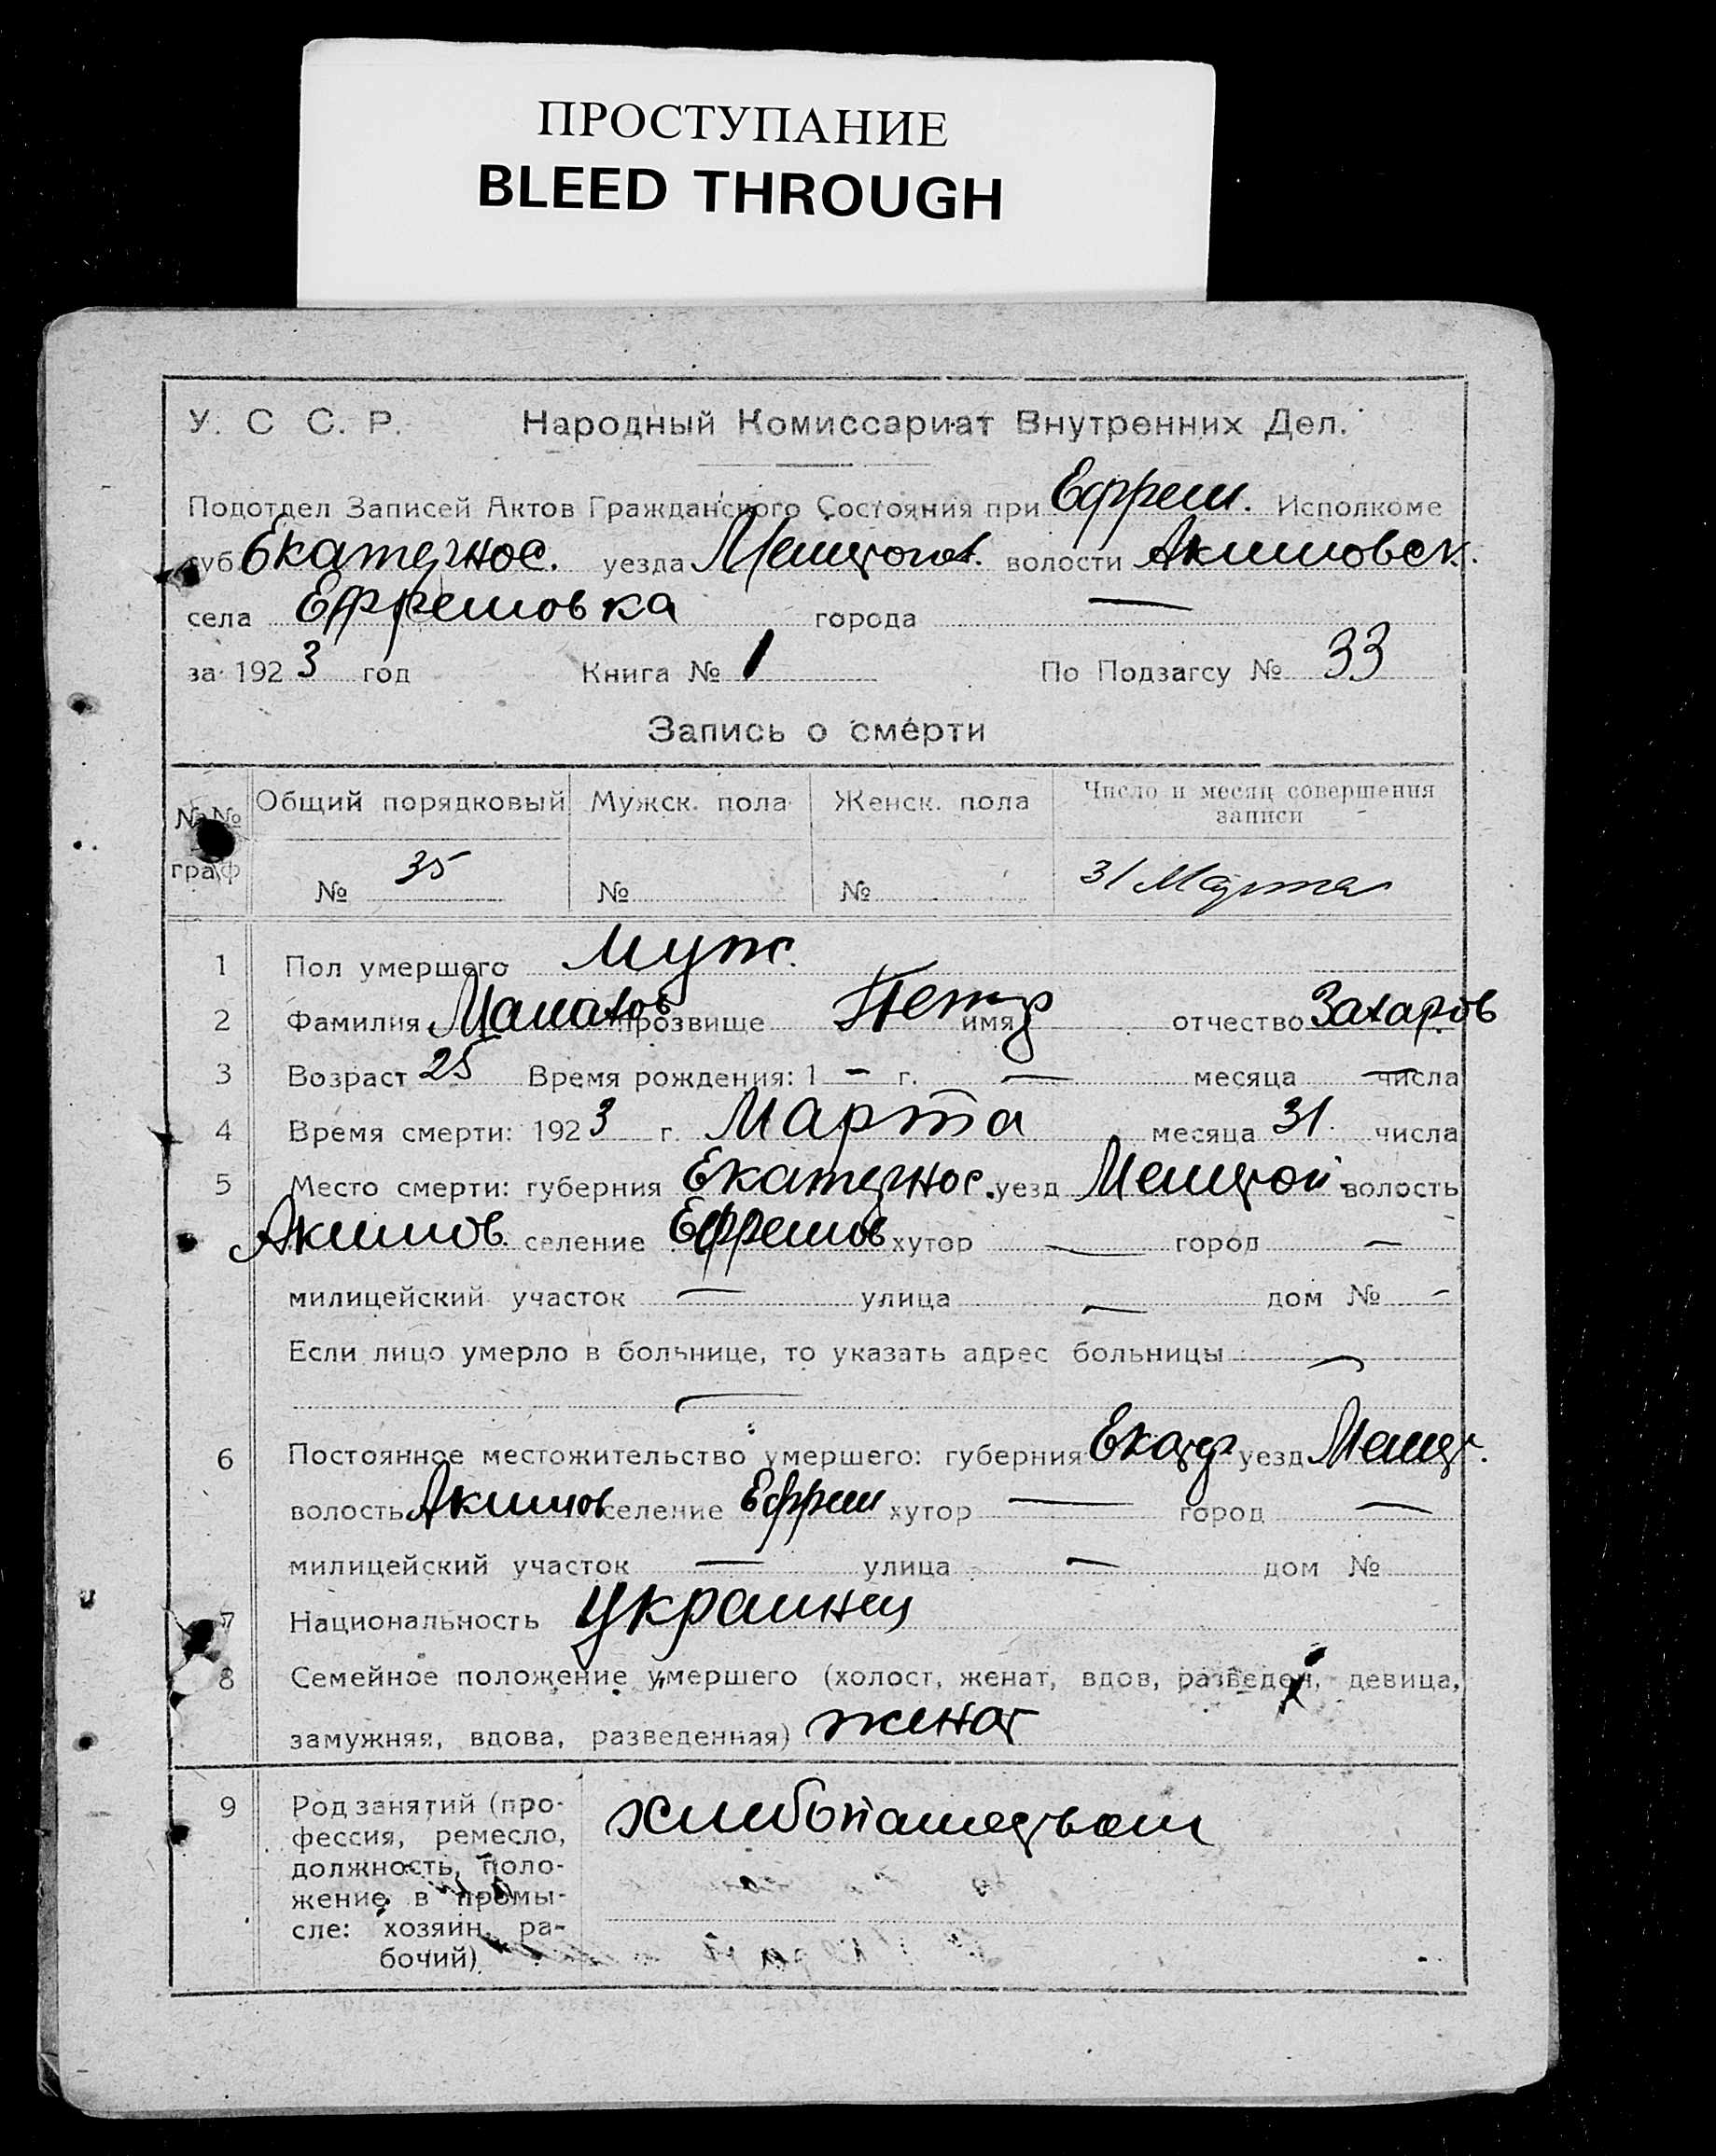 ПРОСТУПАНИЕ
BLEED THROUGH
У. С С. Р. Народный Комиссариат Внутренних Дел.
Подотдел Записей Актов Гражданского Состояния при Ефрем. Исполкоме
губ Екатернос. уезда волости Акимовск.
села Ефремовка города —
за 1923 год Книга № 1 По Подзагсу № 33
Запись о смерти
№№ граф Общий порядковый Мужск. пола Женск. пола Число и месяц совершения записи
№ 35 № № 31 Марта
1 Пол умершего Муж.
2 Фамилия прозвище Петр имя отчество Захаров
3 Возраст 25 Время рождения: 1 — г. — месяца — числа
4 Время смерти: 1923 г. Марта месяца 31 числа
5 Место смерти: губерния Екатернос. уезд Мелитой волость
Акимов. селение Ефремов хутор — город —
милицейский участок — улица — дом № -
Если лицо умерло в больнице, то указать адрес больницы —
—
6 Постоянное местожительство умершего: губерния Екатер уезд Мелит.
волость Акимов селение Ефрем хутор — город —
милицейский участок — улица — дом №
7 Национальность Украинец
8 Семейное положение умершего (холост, женат, вдов, разведен, девица,
замужняя, вдова, разведенная) женат
9 Род занятий (про-
фессия, ремесло,
должность, поло-
жение в промы-
сле: хозяин, ра-
бочий)
хлибопашедвом